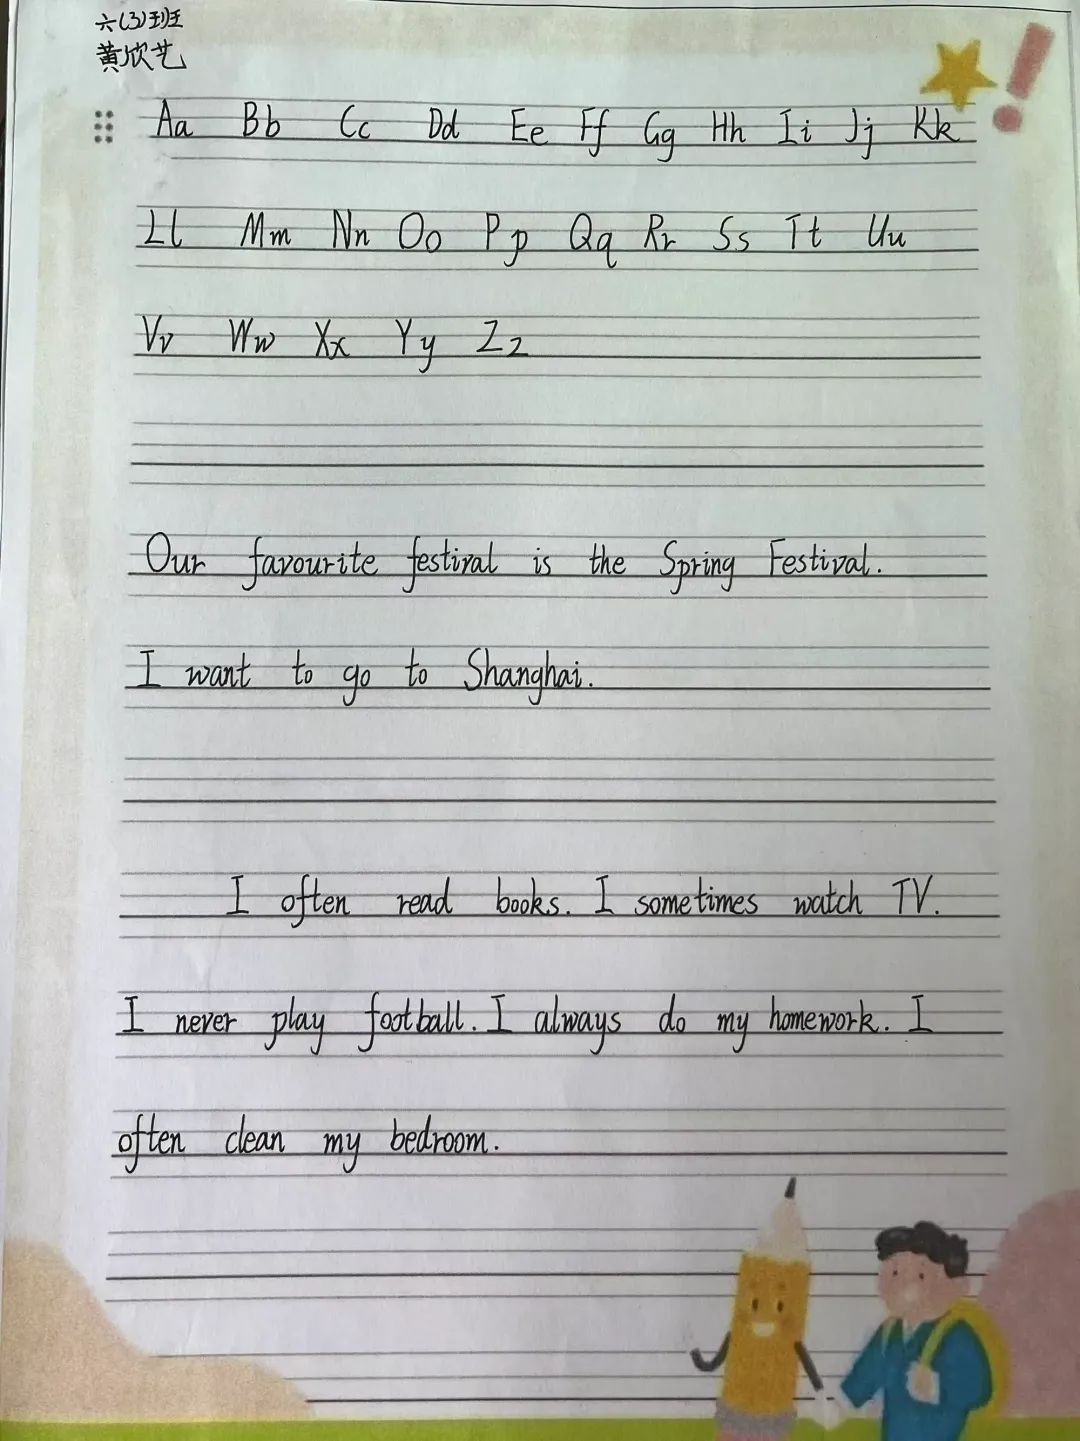 六(3)班
黄欣艺
Aa Bb Cc Dd Ee Ff Gg Hh Ii Jj Kk
Ll Mm Nn Oo Pp Qq Rr Ss Tt Uu
Vv Ww Xx Yy Zz
Our favourite festival is the Spring Festival.
I want to go to Shanghai.
I often read books. I sometimes watch TV.
I never play football. I always do my homework. I
often clean my bedroom.